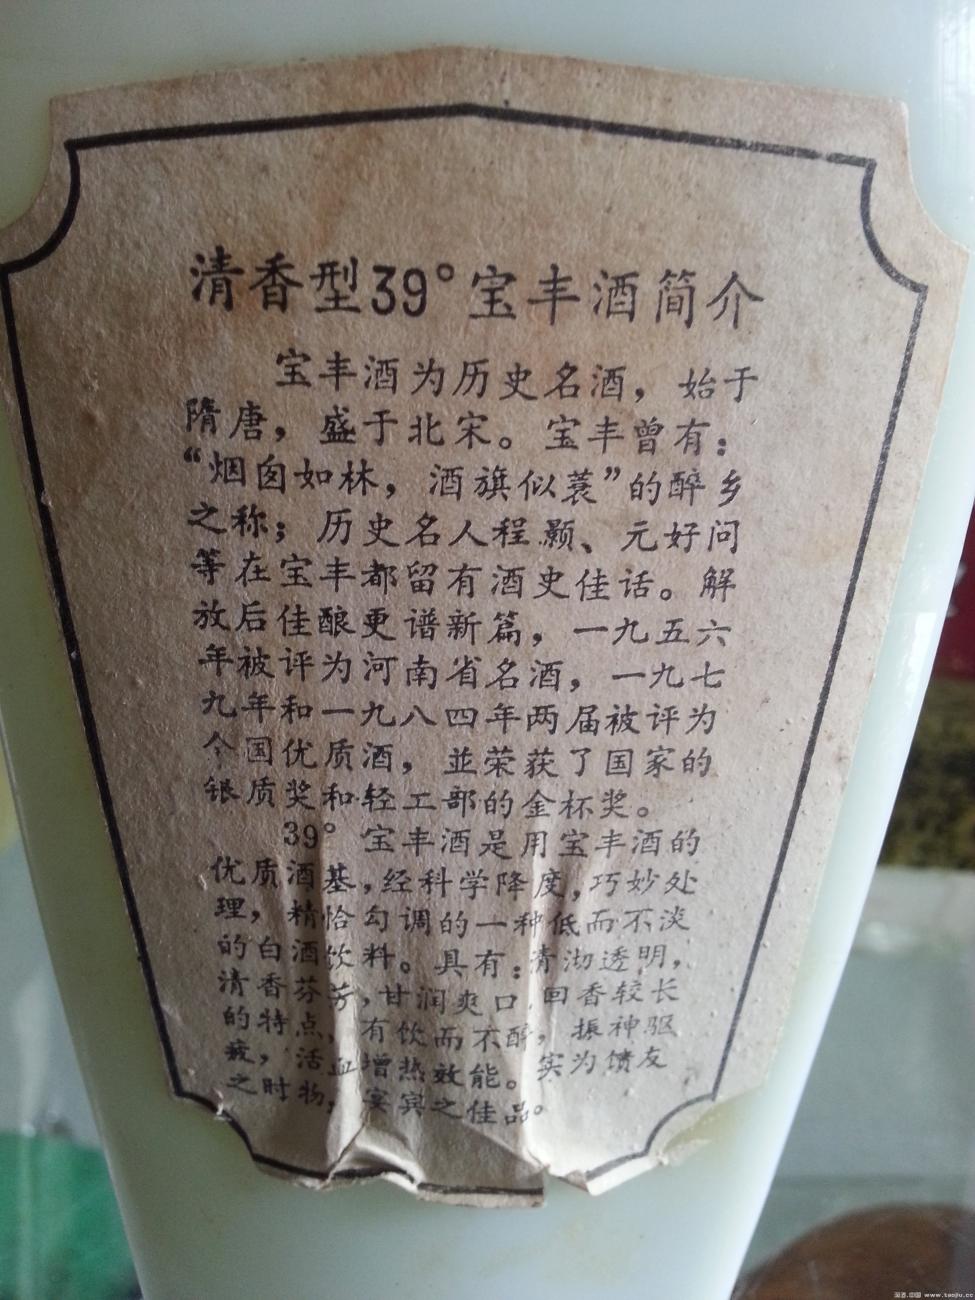 清香型39°宝丰酒简介
宝丰酒为历史名酒，始于
隋唐，盛于北宋。宝丰曾有：
“烟囱如林，酒旗似蓑”的醉乡
之称；历史名人程颢、元好问
等在宝丰都留有酒史佳话。解
放后佳酿更谱新篇，一九五六
年被评为河南省名酒，一九七
九年和一九八四年两届被评为
全国优质酒，並荣获了国家的
银质奖和轻工部的金杯奖。
39°宝丰酒是用宝丰酒的
优质酒基，经科学降度，巧妙处
理，精恰勾调的一种低而不淡
的白酒饮料。具有：清沏透明，
清香芬芳，甘润爽口，回香较长
的特点，有饮而不醉，振神驱
疲，活血增热效能。实为馈友
之时物，宴宾之佳品。
淘酒.中国 www.taojiu.cc